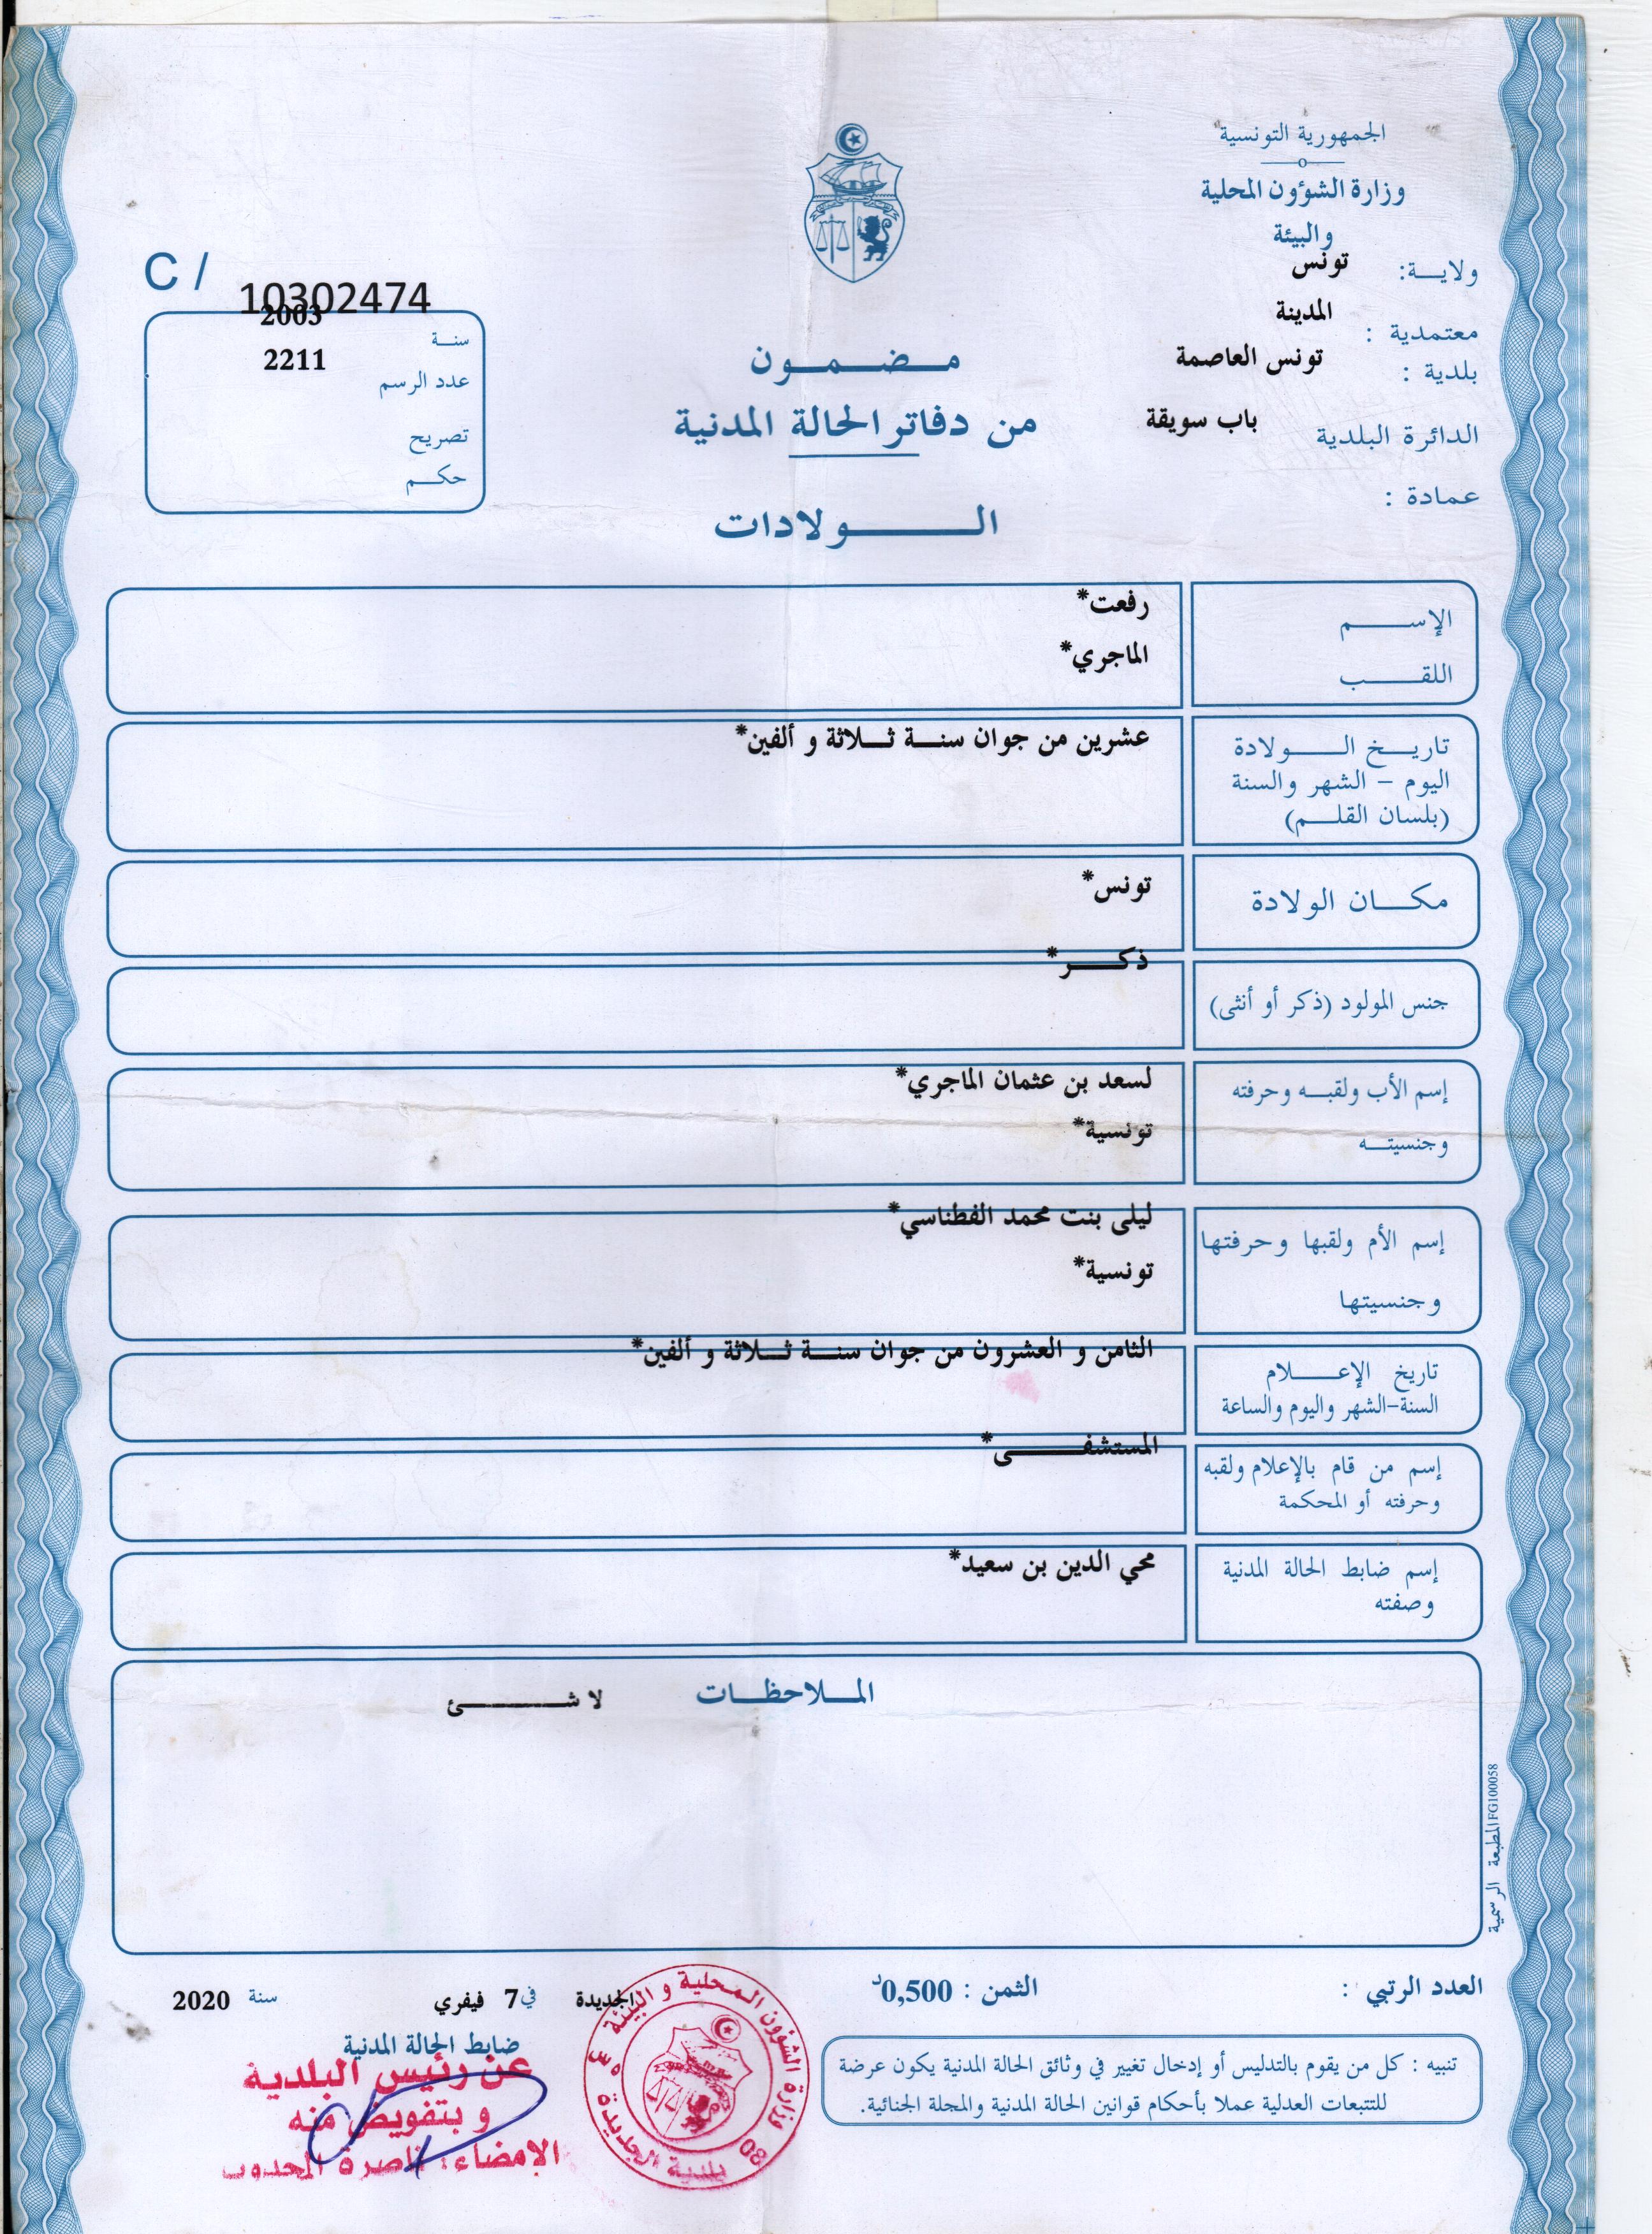 الجمهورية التونسية
وزارة الشؤون المحلية
والبيئة
ولايــة: تونس
معتمدية : المدينة
بلدية : تونس العاصمة
الدائرة البلدية باب سويقة
عمادة :
C / 10302474
سنـة 2003
عدد الرسم 2211
تصريح
حكـم
مـضـمـون
من دفاتر الحالة المدنية
الـولادات
الإسـم رفعت*
اللقـب الماجري*
تاريـخ الـولادة عشرين من جوان سنـة ثـلاثة و ألفين*
اليوم – الشهر والسنة
(بلسان القلـم)
مكـان الولادة تونس*
جنس المولود (ذكر أو أنثى) ذكـر*
إسم الأب ولقبـه وحرفته لسعد بن عثمان الماجري*
وجنسيتـه تونسية*
إسم الأم ولقبها وحرفتها ليلى بنت محمد الفطناسي*
وجنسيتها تونسية*
تاريخ الإعـلام الثامن و العشرون من جوان سنـة ثـلاثة و ألفين*
السنة-الشهر واليوم والساعة
إسم من قام بالإعلام ولقبه المستشفـى*
وحرفته أو المحكمة
إسم ضابط الحالة المدنية محي الدين بن سعيد*
وصفته
المـلاحظـات لا شـئ
المطبعة الرسمية FG100058
العدد الرتبي :
الثمن : 0,500د
الجديدة في 7 فيفري سنة 2020
ضابط الحالة المدنية
عن رئيس البلدية
و بتفويض منه
الإمضاء: ناصرة المجدوب
وزارة الشؤون المحلية و البيئة
بلدية الجديدة
08
تنبيه : كل من يقوم بالتدليس أو إدخال تغيير في وثائق الحالة المدنية يكون عرضة
للتتبعات العدلية عملا بأحكام قوانين الحالة المدنية والمجلة الجنائية.